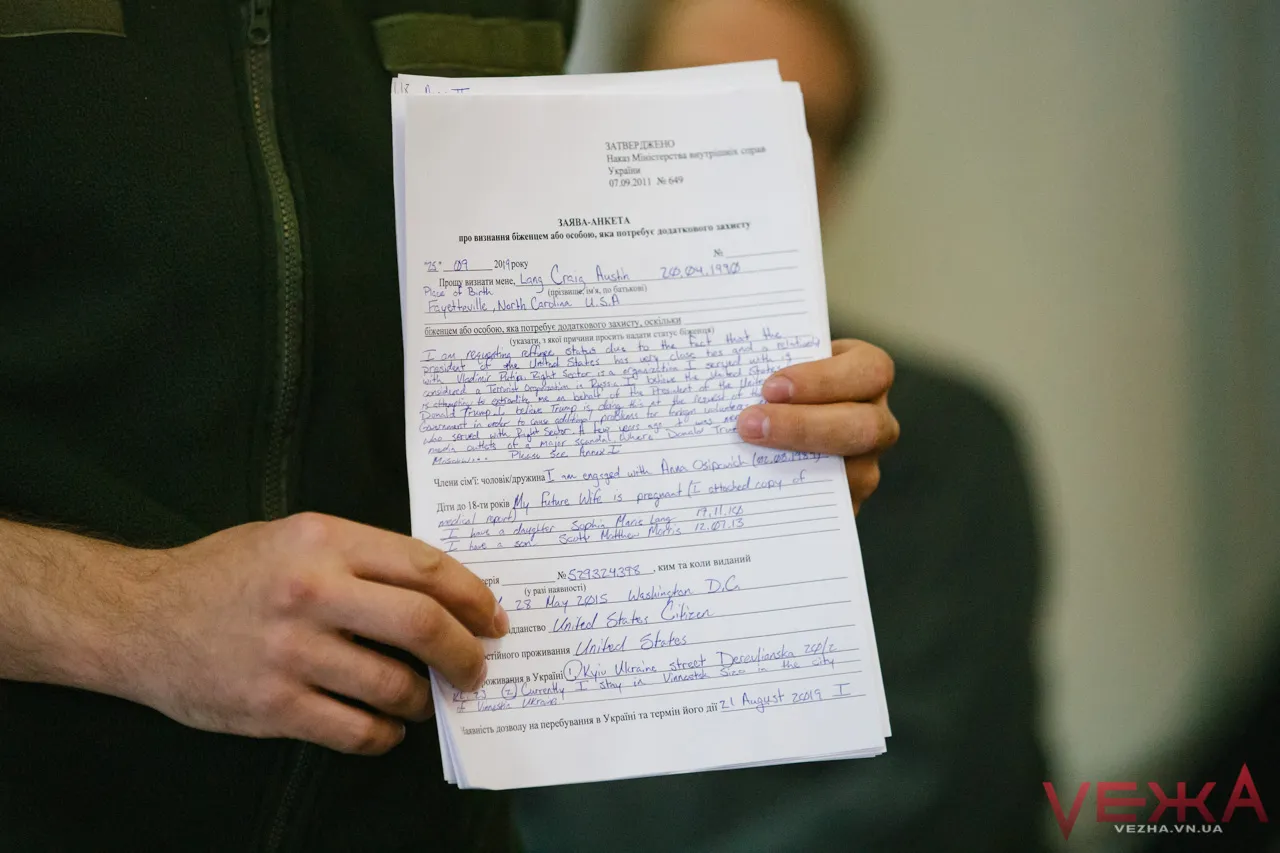 ЗАТВЕРДЖЕНО
Наказ Міністерства внутрішніх справ
України
07.09.2011 № 649
ЗАЯВА-АНКЕТА
про визнання біженцем або особою, яка потребує додаткового захисту
№
"25" 09 2019 року
Прошу визнати мене, Lang Craig Austin 20.04.1990
Place of Birth (прізвище, ім'я, по батькові)
Fayetteville, North Carolina U.S.A
біженцем або особою, яка потребує додаткового захисту, оскільки
(указати, з якої причини просить надати статус біженця)
I am requesting refugee status due to the fact that the
president of the United States has very close ties and a relationship
with Vladimir Putin. Right Sector is a organization I served with is
considered a Terrorist Organization in Russia. I believe the United States
is attempting to extradite me on behalf of the President of the United
Donald Trump. I believe Trump is doing this at the request of the
Government in order to cause additional problems for foreign volunteers
who served with Right Sector. A few years ago it was
media outlets of a major scandal where Donald
Please See Annex I
Члени сім'ї: чоловік/дружина I am engaged with Anna Osipowich
Діти до 18-ти років My Future Wife is pregnant (I attached copy of
medical report)
I have a daughter Sophia Maris Lang 17.11.10
I have a son Scott Matthew Morris 12.07.13
№ 529324398, ким та коли виданий
(у разі наявності)
28 May 2015 Washington D.C.
United States Citizen
проживання United States
проживання в Україні (1) Kyiv Ukraine street Derevlianska 20/2
(2) Currently I stay in Vinnestsk Sizo in the city
of Ukraine
Наявність дозволу на перебування в Україні та термін його дії 21 August 2019 I
VЕЖА
VEZHA.VN.UA